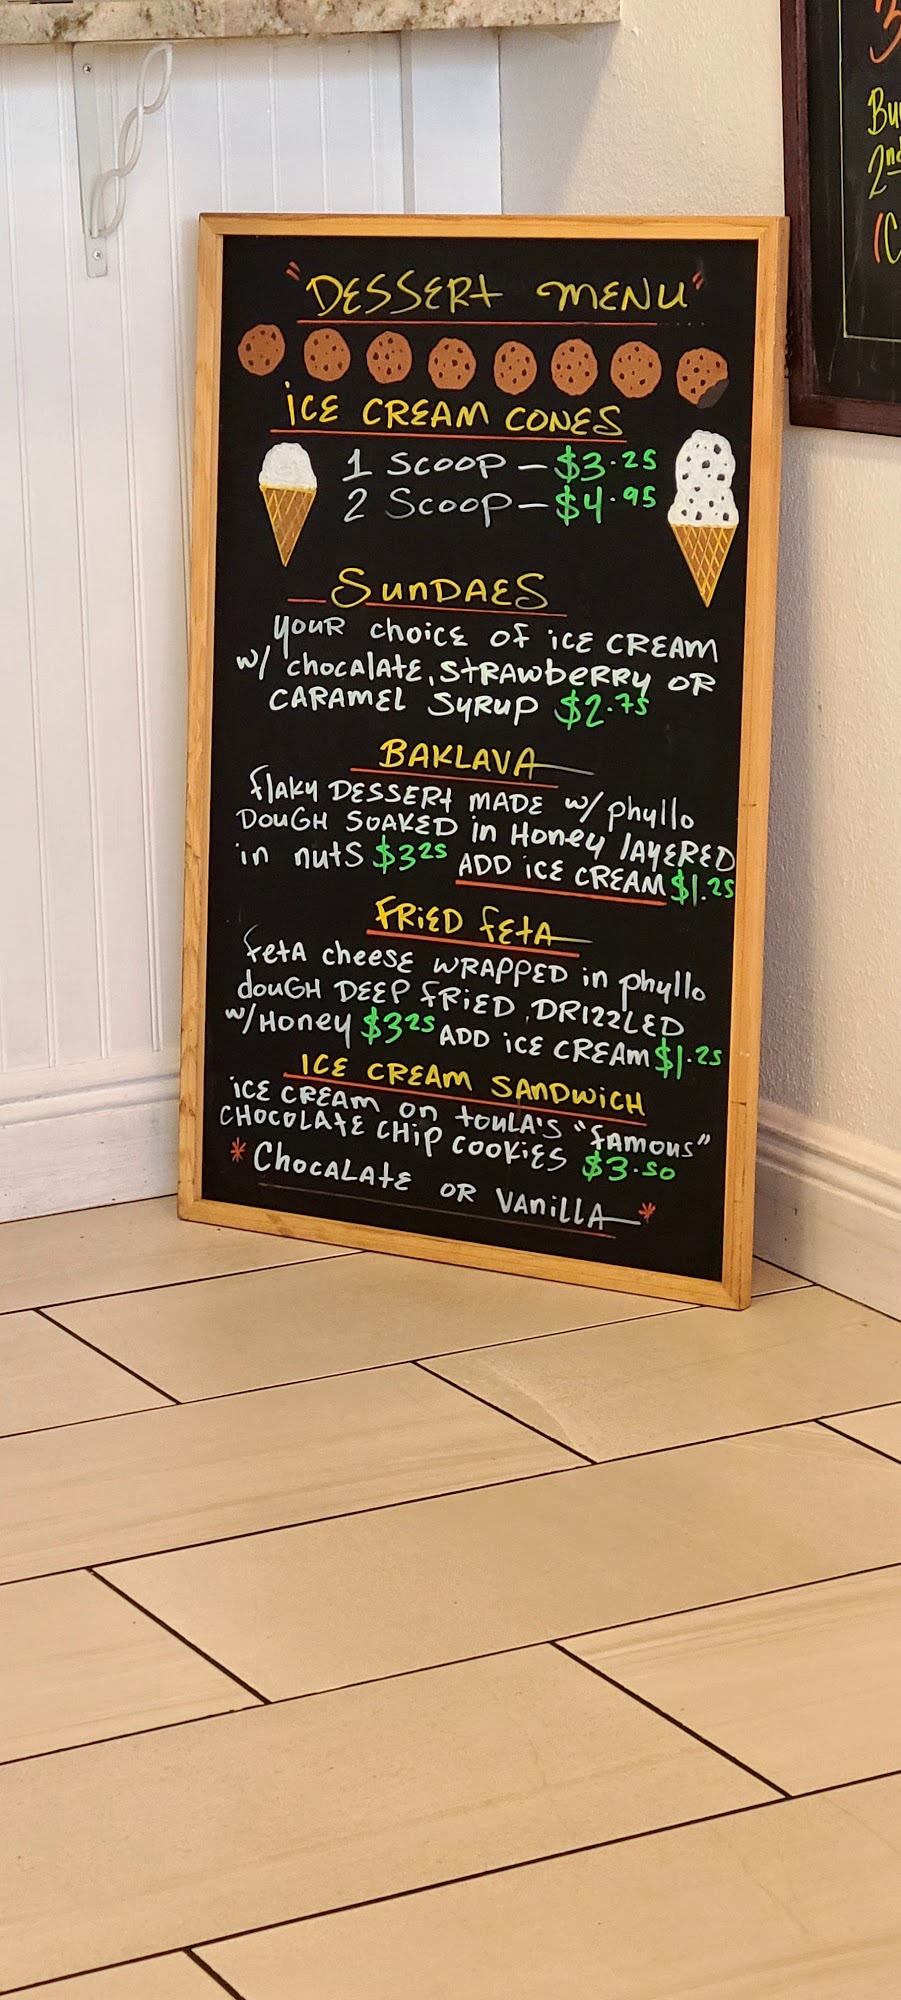 "DESSERT MENU"
ICE CREAM CONES
1 SCOOP - $3.25
2 SCOOP - $4.95
SUNDAES
YOUR CHOICE OF ICE CREAM
W/ CHOCALATE, STRAWBERRY OR
CARAMEL SYRUP $2.75
BAKLAVA
FLAKY DESSERT MADE W/ PHYLLO
DOUGH SOAKED IN HONEY LAYERED
IN NUTS $3.25 ADD ICE CREAM $1.25
FRIED FETA
FETA CHEESE WRAPPED IN PHYLLO
DOUGH DEEP FRIED, DRIZZLED
W/ HONEY $3.25 ADD ICE CREAM $1.25
ICE CREAM SANDWICH
ICE CREAM ON TOULA'S "FAMOUS"
CHOCOLATE CHIP COOKIES $3.50
*CHOCALATE OR VANILLA*
2nd